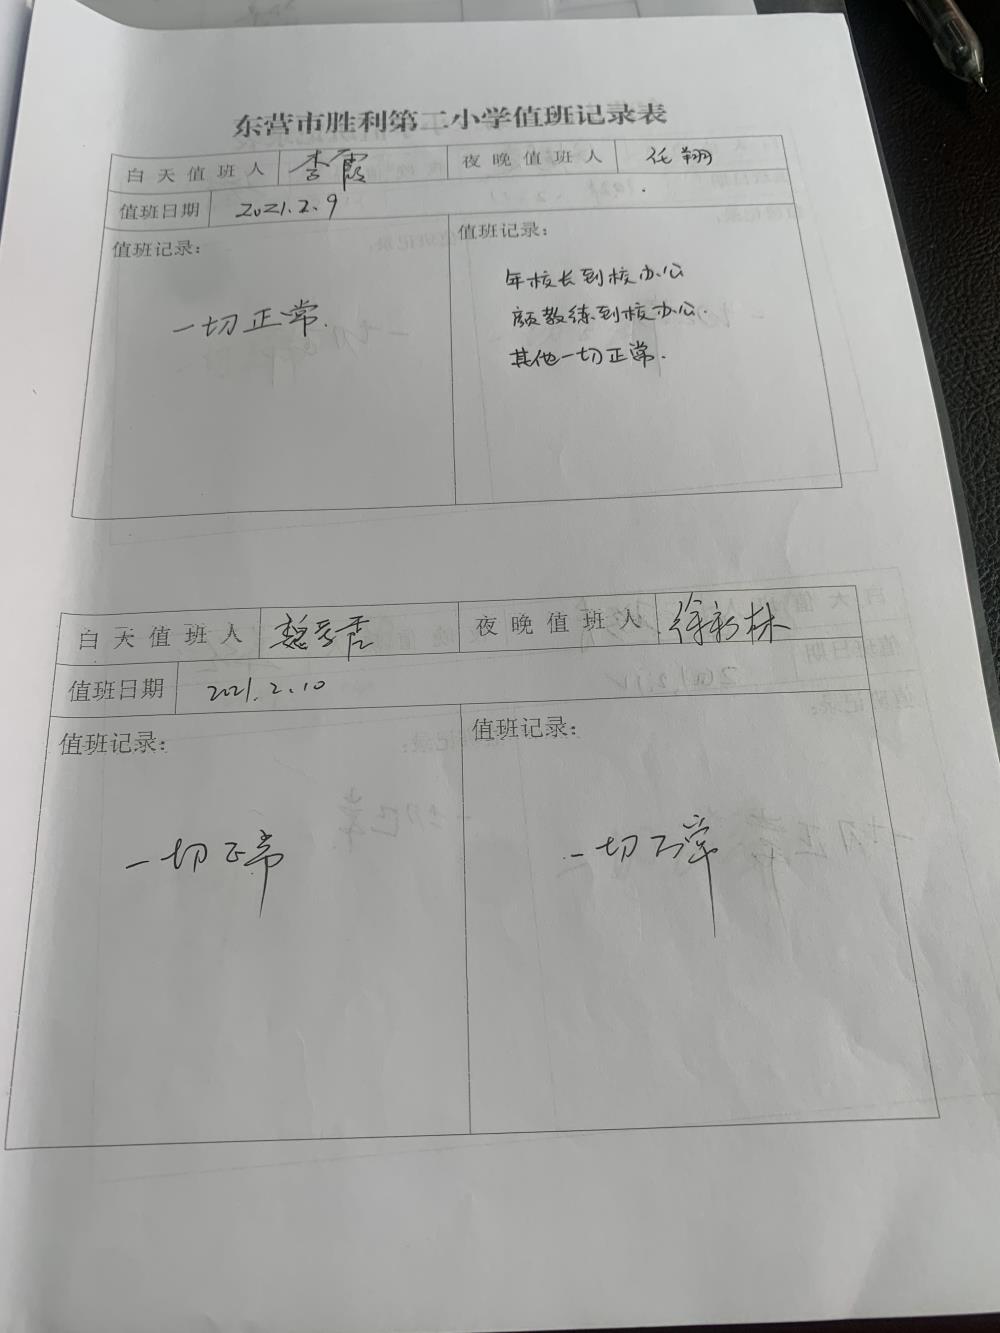 东营市胜利第二小学值班记录表
白天值班人 李霞 夜晚值班人 任翔
值班日期 2021.2.9
值班记录: 值班记录:
一切正常.
年校长到校办公
颜教练到校办公.
其他一切正常.
白天值班人 夜晚值班人 徐新林
值班日期 2021.2.10
值班记录: 值班记录:
一切正常 一切正常